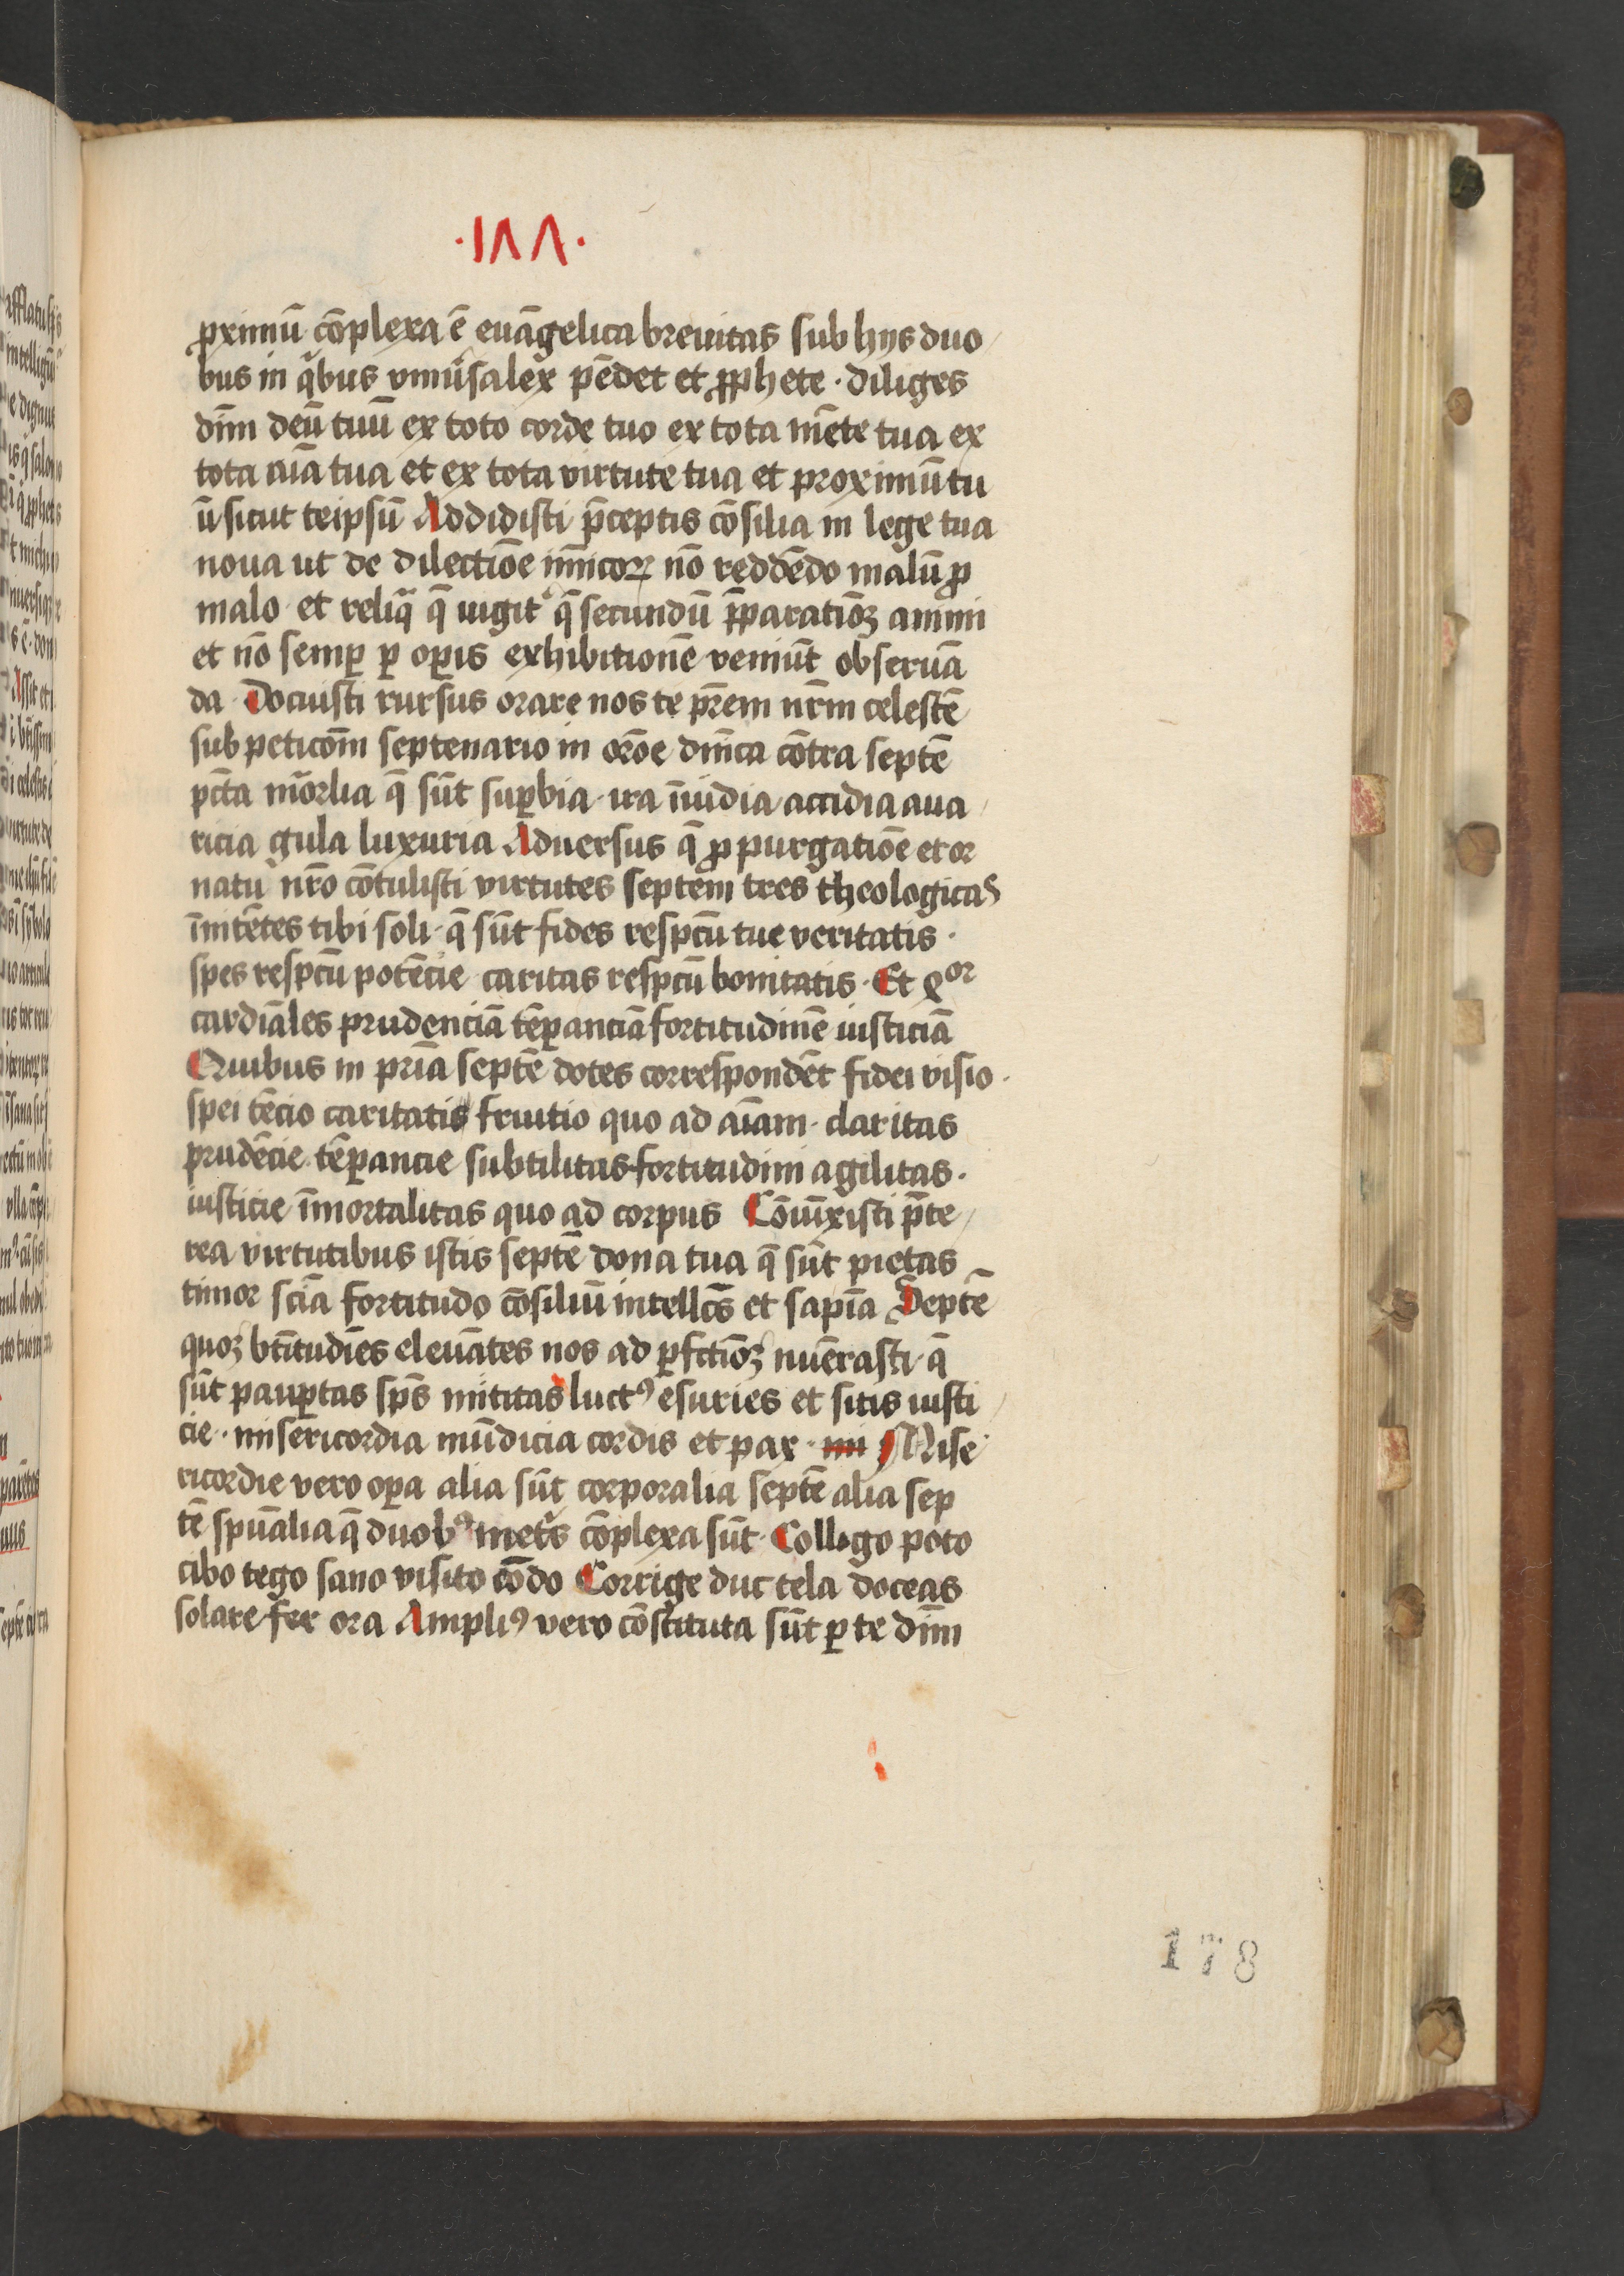 ·1ΛΛ·
ꝓximū cōplexa ē euāgelica breuitas sub hijs duo
bus in qͥbus vniūsa lex pēdet et ꝓphete · diliges
dn̄m deū tuū ex toto corde tuo ex tota mēte tua ex
tota aīa tua et ex tota virtute tua et proximū tu
ū sicut teipsū Addidisti p̄ceptis cōsilia in lege tua
noua ut de dilectiōe inīicoꝝ nō reddēdo malū ꝓ
malo · et reliq̄ q̄ iugit᷑ q̄ secundū p̄paratiōꝫ animi
et nō semꝑ ꝑ oꝑis exhibitionē veniūt obseruā
da · Docuisti rursus orare nos te pr̄em nr̄m celestē
sub peticōm septenario in orōe dn̄ica cōtra septē
pctā mōrlia q̄ sūt suꝑbia · ira īuidia accidia aua
ricia gula luxuria Aduersus q̄ ꝓ purgatiōe et or
natu nr̄o cōtulisti virtutes septem tres theologicas
īnitētes tibi soli · q̄ sūt fides respc̄tu tue veritatis ·
spes respc̄tu potēcie caritas respc̄tu bonitatis · Et qͦʳ
cardiāles prudenciā tēꝑanciā fortitudinē iusticiā
Quibus in pr̄ia septē dotes correspondēt fidei visio ·
spei tēcio caritatis fruitio quo ad aīam · claritas
prudēcie · tēꝑancie subtilitas fortitudini agilitas ·
iusticie īmortalitas quo ad corpus Cōiūxisti p̄te
rea virtutibus istis septē dona tua q̄ sūt pietas
timor scīa fortitudo cōsiliū intellc̄s et sapīa Septē
quoꝫ btītudīes eleuātes nos ad ꝑfctiōꝫ nuērasti · q̄
sūt pauꝑtas sp̄s mititas luctꝰ esuries et sitis iusti
cie · misericordia mūdicia cordis et pax · mi Mise
ricordie vero oꝑa alia sūt corporalia septē alia sep
tē spūalia q̄ duobꝰ met͛s cōplexa sūt · Colligo poto
cibo tego sano visito cōdo Corrige duc tela doceas
solare fer ora Ampliꝰ vero cōstituta sūt ꝑ te dn̄m
178